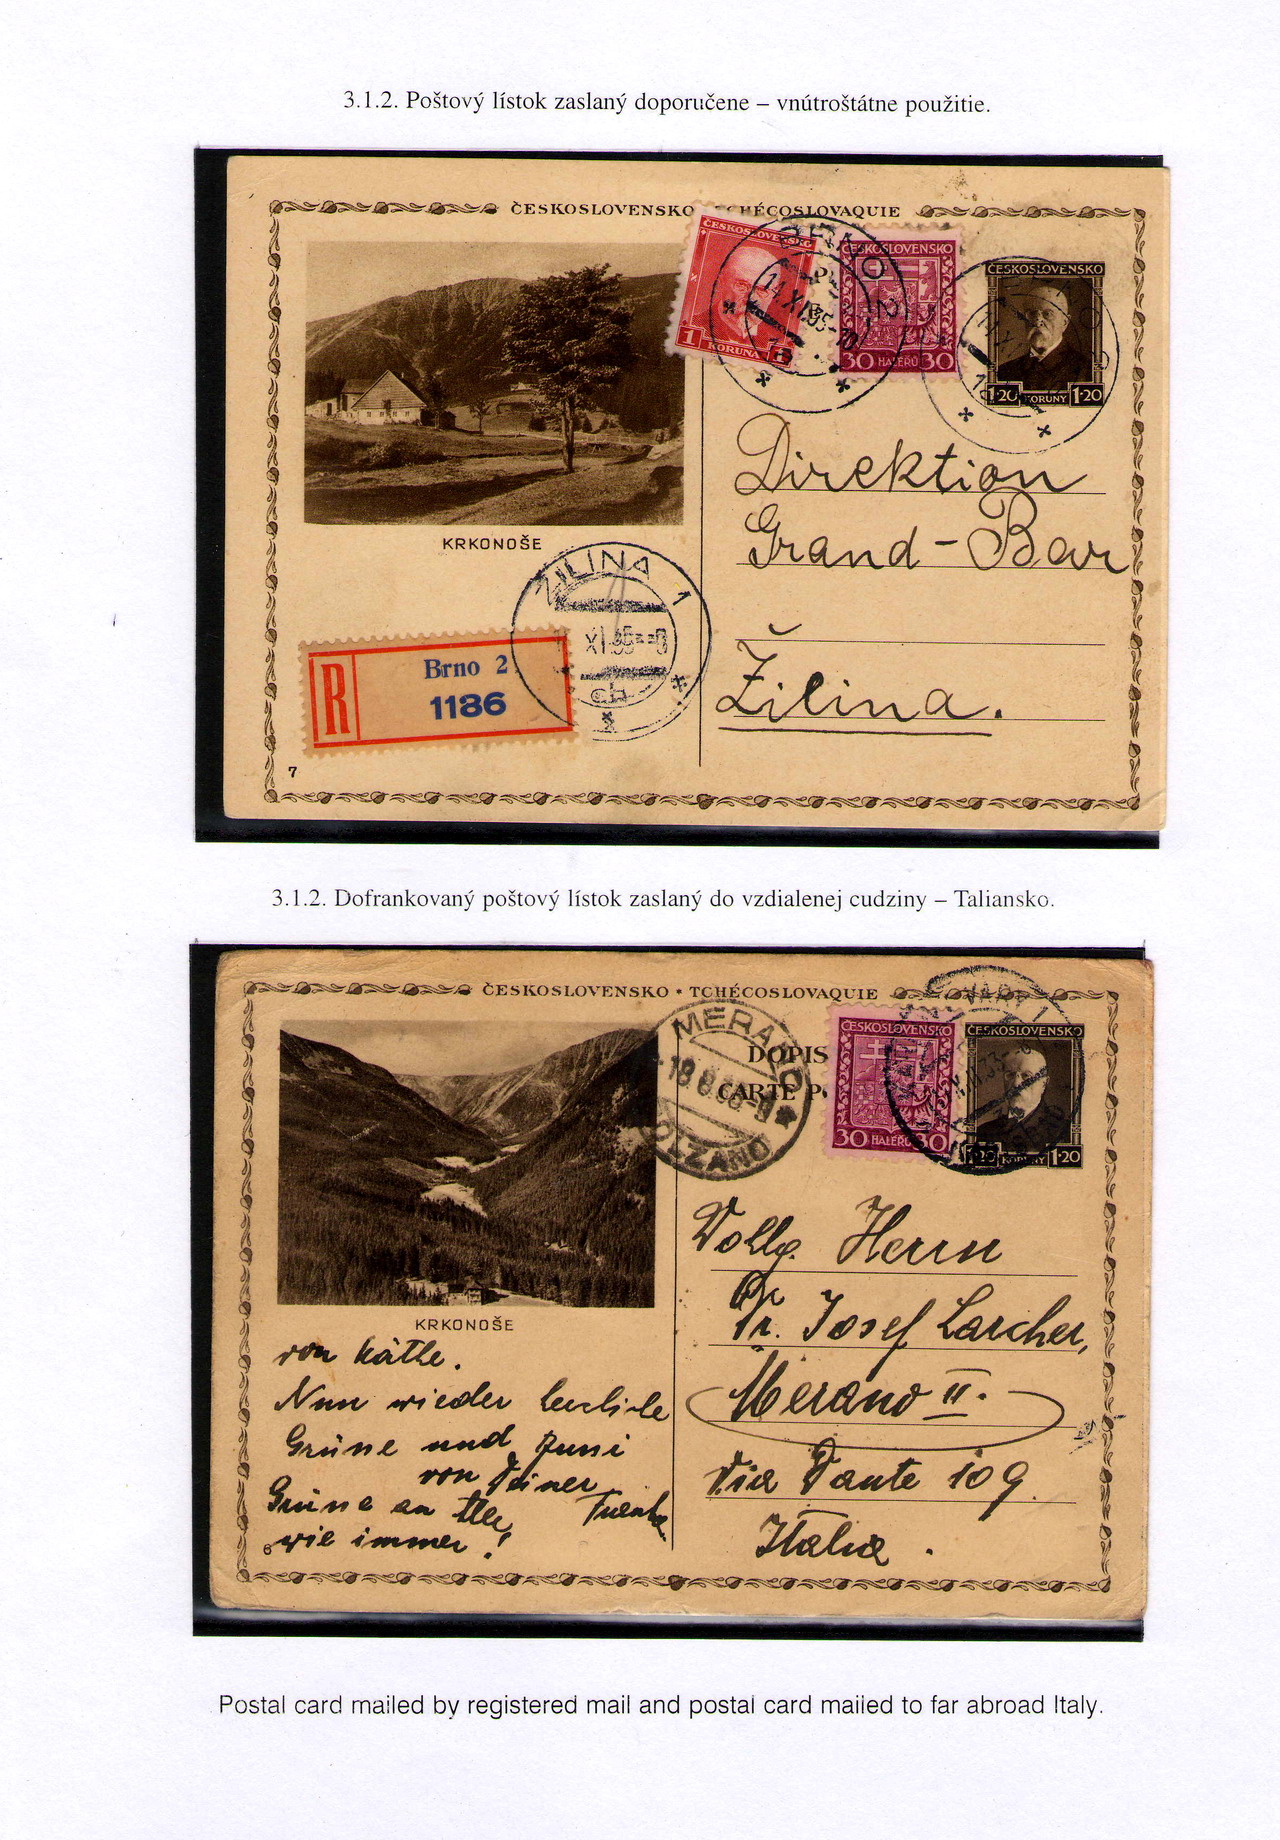 3.1.2. Poštový lístok zaslaný doporučene – vnútroštátne použitie.
ČESKOSLOVENSKO TCHÉCOSLOVAQUIE
ČESKOSLOVENSKO
1 KORUNA 1
ČESKOSLOVENSKO
30 HALÉŘŮ 30
ČESKOSLOVENSKO
1·20 KORUNY 1·20
BRNO 2
14.XI.35-10
KRKONOŠE
Direktion
Grand-Bar
Žilina.
ŽILINA 1
XI.35--8
R
Brno 2
1186
7
3.1.2. Dofrankovaný poštový lístok zaslaný do vzdialenej cudziny – Taliansko.
ČESKOSLOVENSKO • TCHÉCOSLOVAQUIE
MERANO
BOLZANO
DOPIS
CARTE P
ČESKOSLOVENSKO
30 HALÉŘŮ 30
ČESKOSLOVENSKO
1·20 KORUNY 1·20
VARY 1
KRKONOŠE
von Käthe.
Nun wieder
Grüne und
von Deiner
Grüne an
wie immer!
6
Herrn
Dr. Josef Larcher,
Merano II.
Via Dante 109
Italia.
Postal card mailed by registered mail and postal card mailed to far abroad Italy.